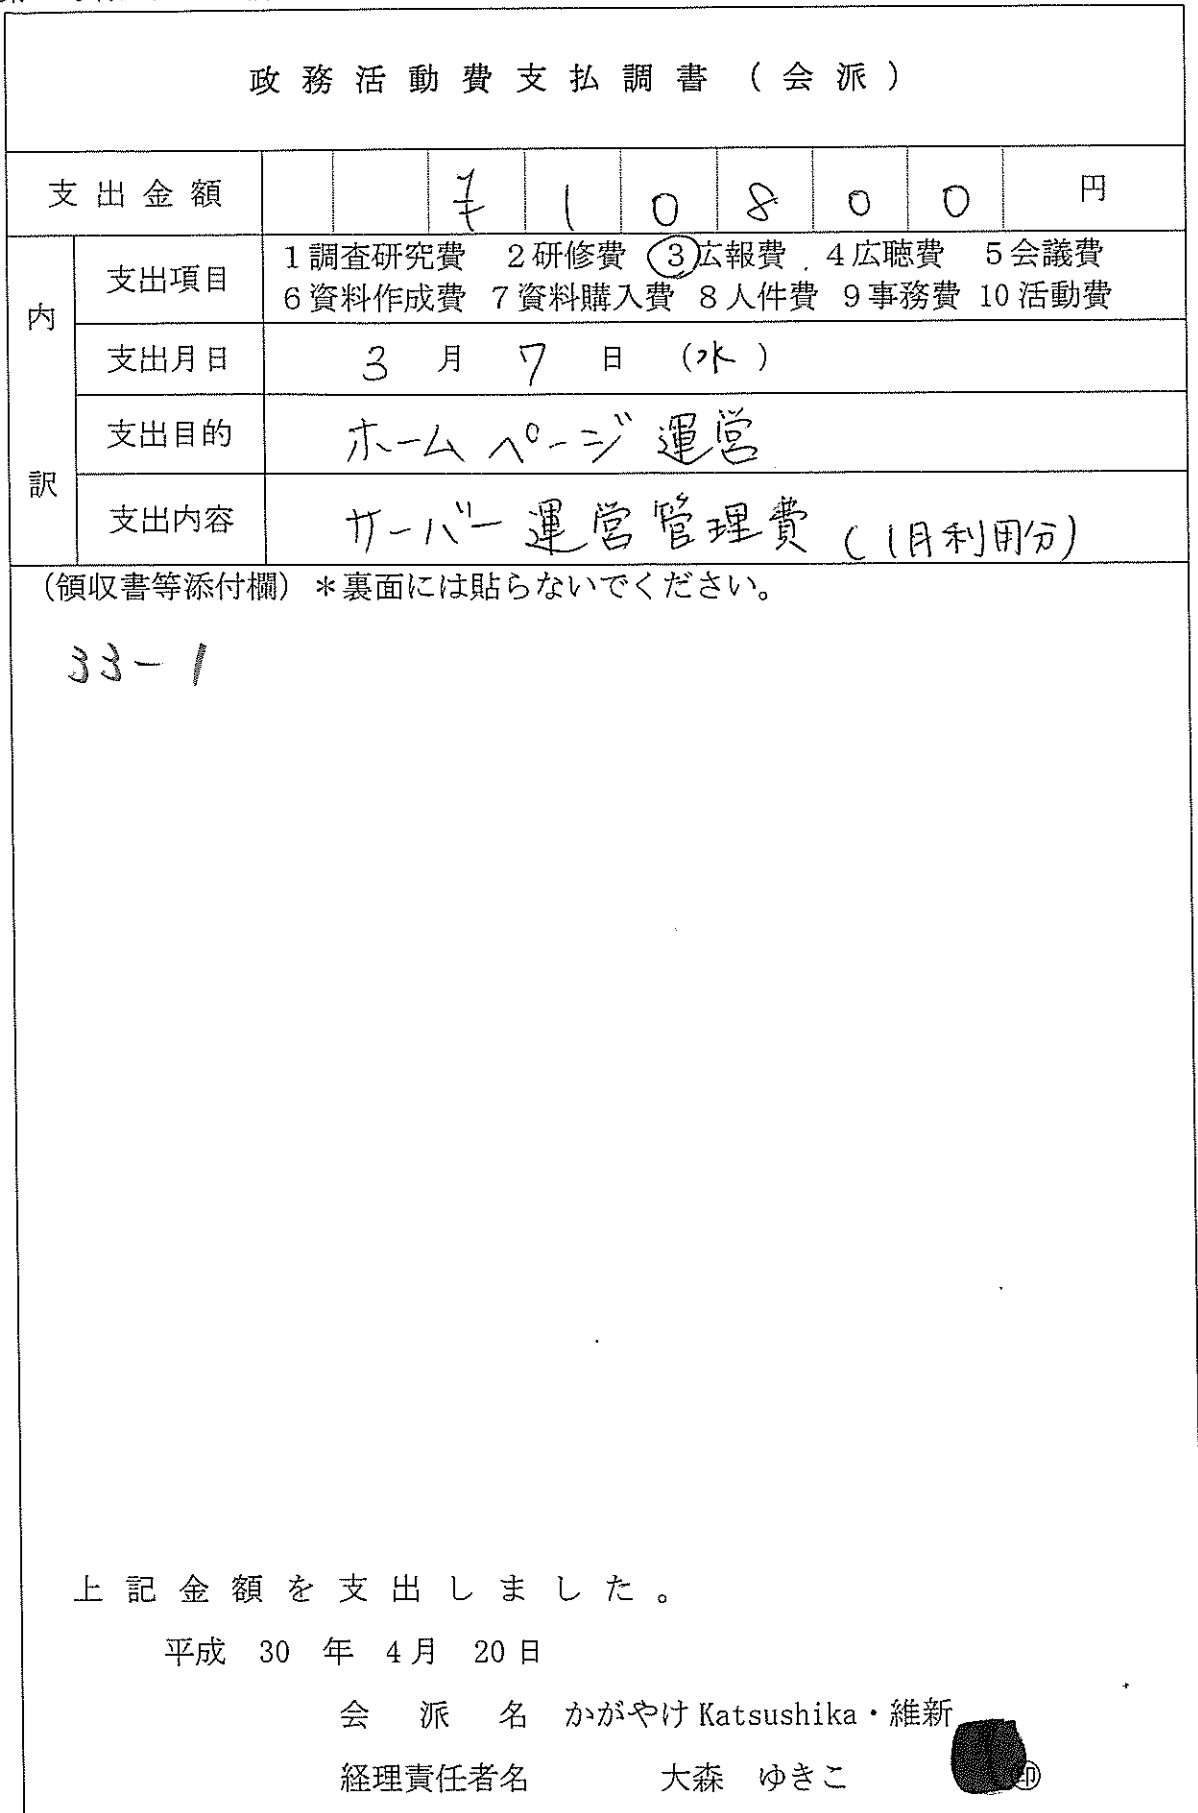 政務活動費支払調書（会派）
支出金額 ¥ 1 0 8 0 0 円
内訳
支出項目 1調査研究費 2研修費 ③広報費 4広聴費 5会議費
6資料作成費 7資料購入費 8人件費 9事務費 10活動費
支出月日 3月7日（水）
支出目的 ホームページ運営
支出内容 サーバー運営管理費（1月利用分）
（領収書等添付欄）＊裏面には貼らないでください。
33-1
上記金額を支出しました。
平成 30 年 4月 20日
会派名 かがやけKatsushika・維新
経理責任者名 大森 ゆきこ ㊞